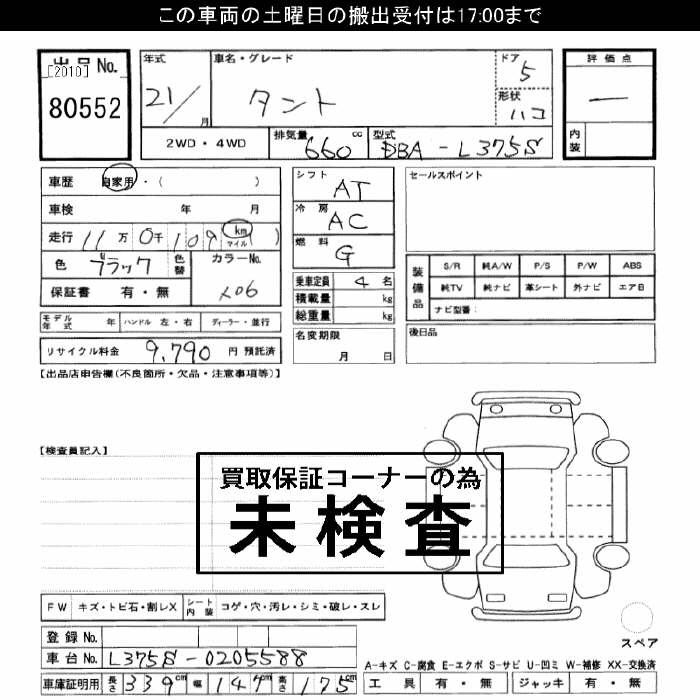 この車両の土曜日の搬出受付は17:00まで
出品No.
[2010]
80552
年式
21/
月
車名・グレード
タント
ドア
5
形状
ハコ
評価点
—
内装
2WD・4WD
排気量
660 cc
型式
DBA-L375S
車歴 自家用・( )
車検 年 月
走行 11万0千109 km マイル ( )
色 ブラック 色替
カラーNo.
X06
保証書 有・無
モデル年式 年 ハンドル 左・右 ディーラー・並行
リサイクル料金 9,790 円 預託済
シフト
AT
冷房
AC
燃料
G
乗車定員 4 名
積載量 kg
総重量 kg
名変期限
月 日
セールスポイント
装備品
S/R 純A/W P/S P/W ABS
純TV 純ナビ 革シート 外ナビ エアB
ナビ型番:
後日品
【出品店申告欄(不良箇所・欠品・注意事項等)】
【検査員記入】
買取保証コーナーの為
未検査
FW キズ・トビ石・割レX シート内装 コゲ・穴・汚レ・シミ・破レ・スレ
スペア
登録No.
車台No. L375S-0205588
車庫証明用 長さ 339cm 幅 147cm 高さ 175cm
A-キズ C-腐食 E-エクボ S-サビ U-凹ミ W-補修 XX-交換済
工具 有・無 ジャッキ 有・無